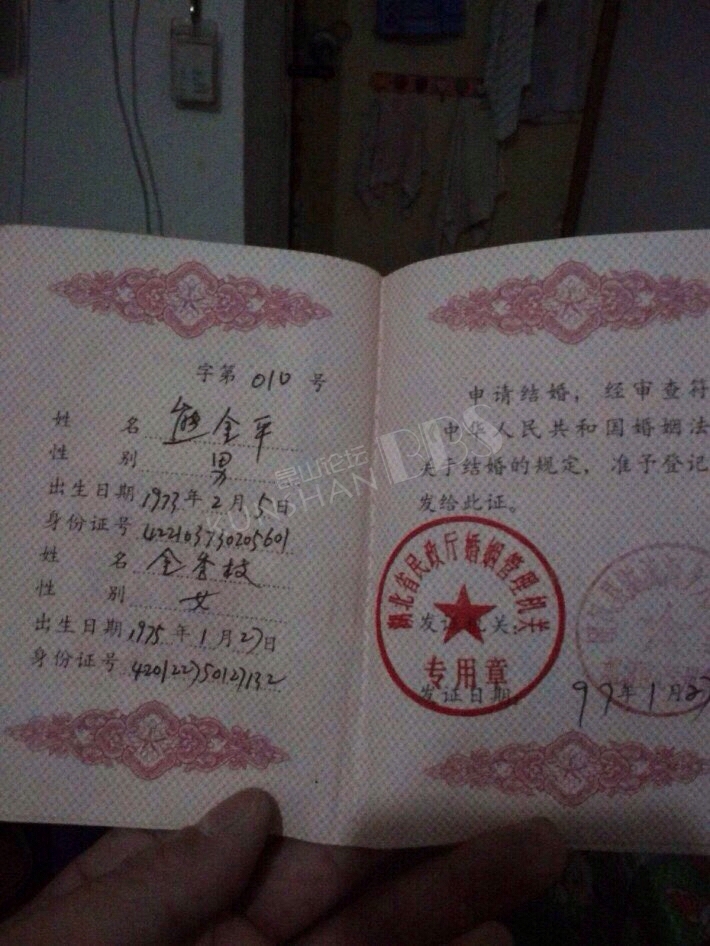 字第 010 号
姓 名 熊金平
性 别 男
出生日期 1973年2月5日
身份证号 422103730205601
姓 名
性 别 女
出生日期 1975年1月27日
身份证号 420122750127132
申请结婚，经审查符
中华人民共和国婚姻法
关于结婚的规定，准予登记
发给此证。
湖北省民政厅婚姻管理机关
专用章
发证机关
发证日期 97年1月27
昆山论坛 BBS
KUNSHAN